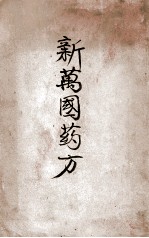 新萬國药方